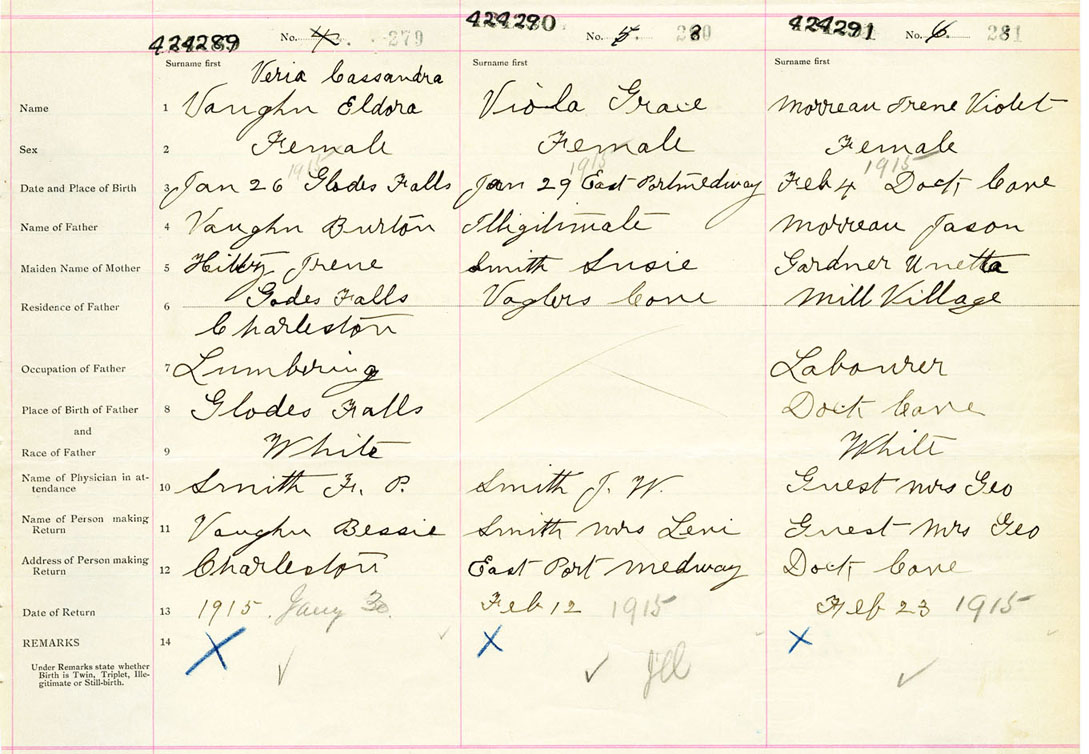 424289 No. 4. 279 424290 No. 5. 280 424291 No. 6. 281
Surname first Surname first Surname first
Veria Cassandra
Name 1 Vaughn Eldora Viola Grace Morreau Irene Violet
Sex 2 Female Female Female
1915 1915 1915
Date and Place of Birth 3 Jan 26 Glodes Falls Jan 29 East Portmedway Feb 4 Dock Cove
Name of Father 4 Vaughn Burton Illigitimate Morreau Jason
Maiden Name of Mother 5 Irene Smith Susie Gardner Unetta
Residence of Father 6 Godes Falls Voglers Cove Mill Village
Charleston
Occupation of Father 7 Lumbering Labourer
Place of Birth of Father 8 Glodes Falls Dock Cove
and
Race of Father 9 White White
Name of Physician in at-
tendance 10 Smith F. P. Smith J. W. Guest Mrs Geo
Name of Person making
Return 11 Vaughn Bessie Smith Mrs Levi Guest Mrs Geo
Address of Person making
Return 12 Charleston East Port Medway Dock Cove
Date of Return 13 1915. Jany 30. Feb 12 1915 Feb 23 1915
REMARKS 14 X X X
Under Remarks state whether
Birth is Twin, Triplet, Ille-
gitimate or Still-birth.
Ill